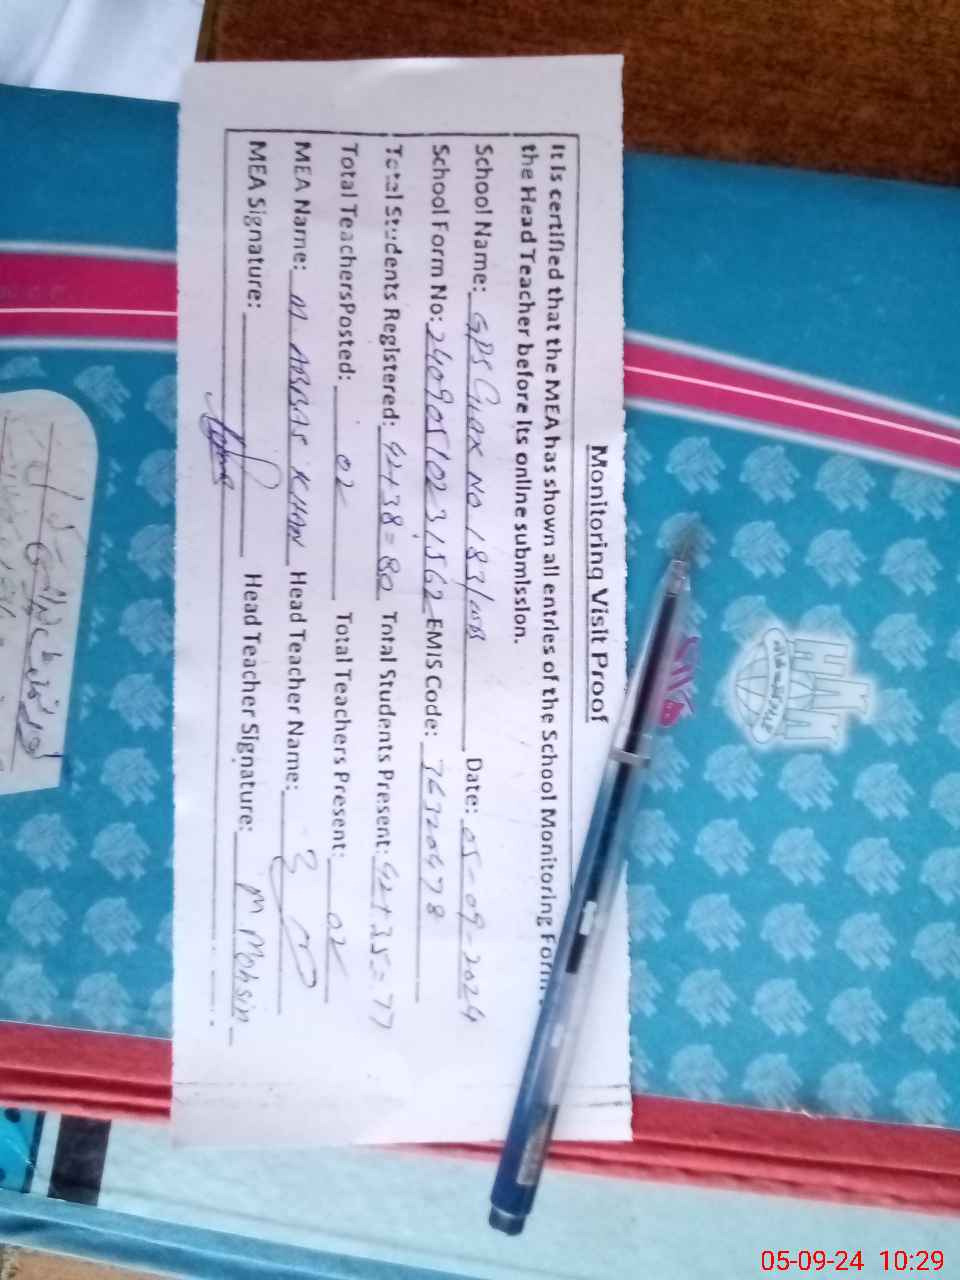 Monitoring Visit Proof
It is certified that the MEA has shown all entries of the School Monitoring Form
the Head Teacher before its online submission.
School Name: GPS Chak No 183/WB Date: 05-09-2024
School Form No: 24090510231562 EMIS Code:
Total Students Registered: 42+38=80 Total Students Present: 42+35=77
Total Teachers Posted: 02 Total Teachers Present: 02
MEA Name: M ABBAS KHAN Head Teacher Name:
MEA Signature: Head Teacher Signature: M Mohsin
05-09-24 10:29